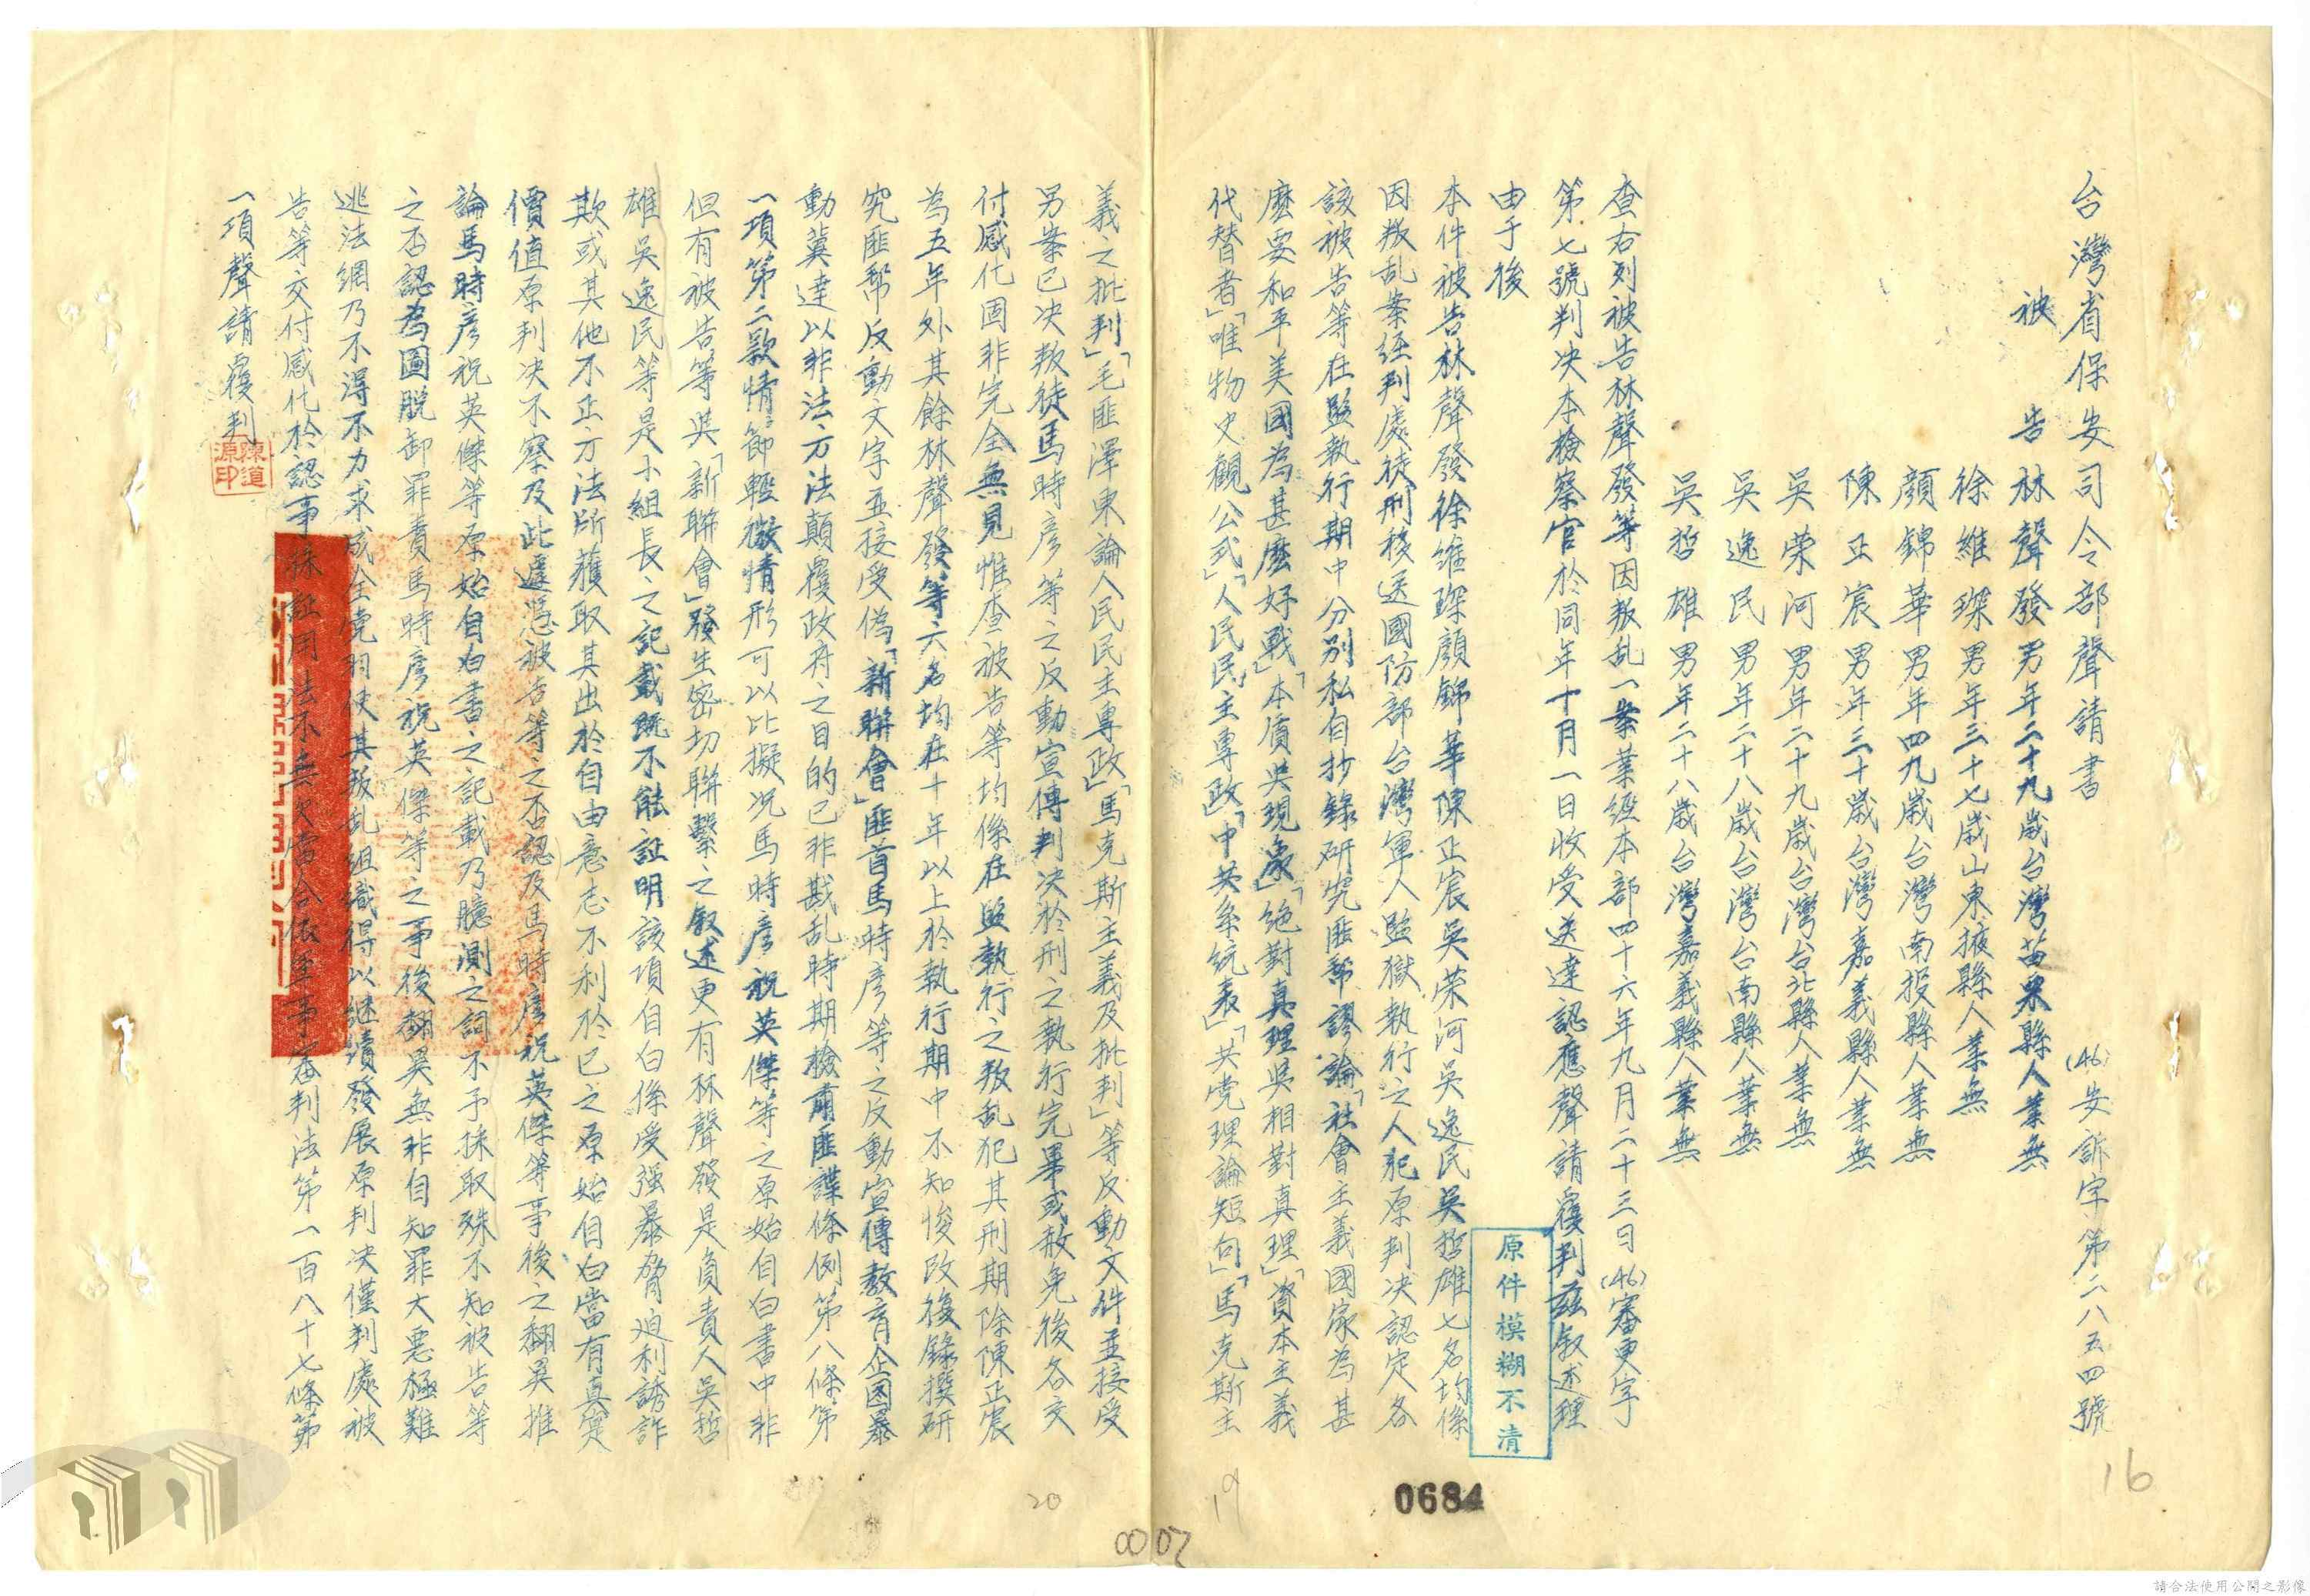 台灣省保安司令部聲請書
(46)安訴字第二八五四號
被告 林聲發 男年二十九歲台灣苗栗縣人業無
徐維琛 男年三十七歲山東掖縣人業無
顏錦華 男年四九歲台灣南投縣人業無
陳正宸 男年三十歲台灣嘉義縣人業無
吳荣河 男年二十九歲台灣台北縣人業無
吳逸民 男年二十八歲台灣台南縣人業無
吳哲雄 男年二十八歲台灣嘉義縣人業無
查右列被告林聲發等因叛乱一案業經本部四十六年九月二十三日(46)審更字
第七號判决本檢察官於同年十月一日收受送達認應聲請覆判茲叙述理
由于後
本件被告林聲發徐維琛顏錦華陳正宸吳荣河吳逸民吳哲雄七名均係
因叛乱案經判處徒刑移送國防部台灣軍人監獄執行之人犯原判决認定各
該被告等在監執行期中分别私自抄錄研究匪幫謬論「社會主義國家為甚
麼要和平美國為甚麼好戰」「本質吳現象」「絶對真理吳相對真理」「資本主義
代替者」「唯物史觀公式」「人民民主專政」「中共系統表」「共党理論短句」「馬克斯主
義之批判」「毛匪澤東論人民民主專政」「馬克斯主義及批判」等反動文件並接受
另案已决叛徒馬時彥等之反動宣傳判决於刑之執行完畢或赦免後各交
付感化固非完全無見惟查被告等均係在監執行之叛乱犯其刑期除陳正宸
為五年外其餘林聲發等六名均在十年以上於執行期中不知悛改後錄撰研
究匪幫反動文字並接受偽「新聯會」匪首馬時彥等之反動宣傳教育企圖暴
動冀達以非法方法顛覆政府之目的已非戡乱時期檢肅匪諜條例第八條第
一項第二款情節輕微情形可以比擬况馬時彥祝英傑等之原始自白書中非
但有被告等吳「新聯會」發生密切聯繫之叙述更有林聲發是負責人吳哲
雄吳逸民等是小組長之記載既不能証明該項自白係受强暴脅迫利誘詐
欺或其他不正方法所獲取其出於自由意志不利於己之原始自白當有真實
價值原判决不察及此遽憑被告等之否認及馬時彥祝英傑等事後之翻異推
論馬時彥祝英傑等原始自白書之記載乃臆測之詞不予採取殊不知被告等
之否認為圖脱卸罪責馬時彥祝英傑等之事後翻異無非自知罪大惡極難
逃法網乃不得不力求成全党羽使其叛乱組織得以继續發展原判决僅判處被
告等交付感化於認事採証用法不無欠當合依軍事審判法第一百八十七條第
一項聲請覆判
陳道源印
原件模糊不清
16
19
0684
20
0007
請合法使用公開之影像